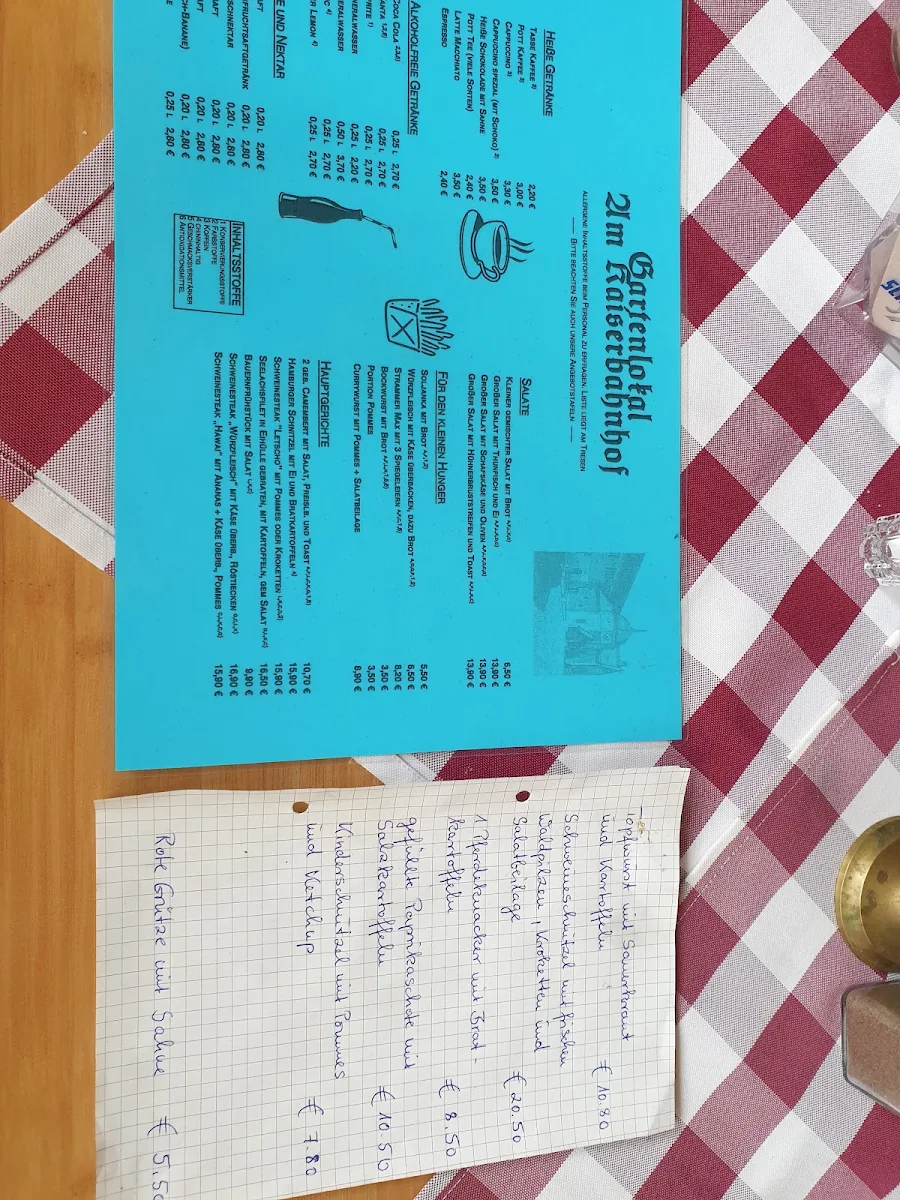 Gartenlokal
Am Kaiserbahnhof
ALLERGENE INHALTSSTOFFE BEIM PERSONAL ZU ERFRAGEN. LISTE LIEGT AM TRESEN
BITTE BEACHTEN SIE AUCH UNSERE ANGEBOTSTAFELN
HEIßE GETRÄNKE
TASSE KAFFEE 3) 2,20 €
POTT KAFFEE 3) 3,00 €
CAPPUCCINO 3) 3,30 €
CAPPUCCINO SPEZIAL (MIT SCHOKO) 3) 3,50 €
HEIßE SCHOKOLADE MIT SAHNE 3,50 €
POTT TEE (VIELE SORTEN) 2,40 €
LATTE MACCHIATO 3,50 €
ESPRESSO 2,40 €
ALKOHOLFREIE GETRÄNKE
COCA COLA 0,25 L 2,70 €
0,25 L 2,70 €
0,25 L 2,70 €
0,25 L 2,20 €
0,50 L 3,70 €
0,25 L 2,70 €
LEMON 4) 0,25 L 2,70 €
E UND NEKTAR
AFT 0,20 L 2,80 €
FRUCHTSAFTGETRÄNK 0,20 L 2,80 €
SCHNEKTAR 0,20 L 2,80 €
AFT 0,20 L 2,80 €
0,20 L 2,80 €
CH-BANANE) 0,20 L 2,80 €
0,25 L 2,60 €
INHALTSSTOFFE
1 KONSERVIERUNGSSTOFFE
2 FARBSTOFFE
3 KOFFEIN
4 CHININHALTIG
5 GESCHMACKSVERSTÄRKER
6 ANTIOXIDATIONSMITTEL
SALATE
KLEINER GEMISCHTER SALAT MIT BROT 6,50 €
GROßER SALAT MIT THUNFISCH UND EI 13,90 €
GROßER SALAT MIT SCHAFSKÄSE UND OLIVEN 13,90 €
GROßER SALAT MIT HÜHNERBRUSTSTREIFEN UND TOAST 13,90 €
FÜR DEN KLEINEN HUNGER
SOLJANKA MIT BROT 5,50 €
WÜRZFLEISCH MIT KÄSE ÜBERBACKEN, DAZU BROT 6,50 €
STRAMMER MAX MIT 3 SPIEGELEIERN 8,20 €
BOCKWURST MIT BROT 3,50 €
PORTION POMMES 3,50 €
CURRYWURST MIT POMMES + SALATBEILAGE 8,90 €
HAUPTGERICHTE
2 GEB. CAMEMBERT MIT SALAT, PREISLB. UND TOAST 10,70 €
HAMBURGER SCHNITZEL MIT EI UND BRATKARTOFFELN 15,90 €
SCHWEINESTEAK "LETSCHO" MIT POMMES ODER KROKETTEN 15,90 €
SEELACHSFILET IN EIHÜLLE GEBRATEN, MIT KARTOFFELN, GEM SALAT 16,50 €
BAUERNFRÜHSTÜCK MIT SALAT 9,90 €
SCHWEINESTEAK „WÜRZFLEISCH" MIT KÄSE ÜBERB., RÖSTIECKEN 16,90 €
SCHWEINESTEAK „HAWAI" MIT ANANAS + KÄSE ÜBERB., POMMES 15,90 €
Topfwurst mit Sauerkraut
und Kartoffeln € 10.80
Schweineschnitzel mit frischen
Waldpilzen, Kroketten und
Salatbeilage € 20.50
1 Pferdeknacker mit Brat-
kartoffeln € 8.50
gefüllte Paprikaschote mit
Salzkartoffeln € 10.50
Kinderschnitzel mit Pommes
und Ketchup € 7.80
Rote Grütze mit Sahne € 5.50